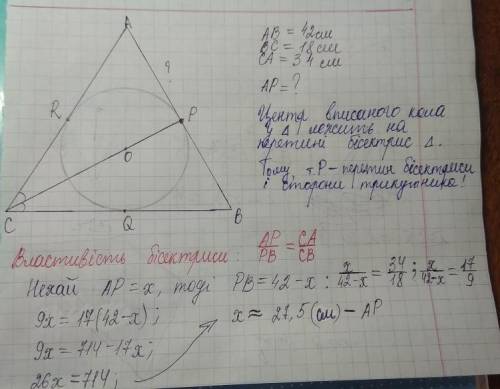 A
AB = 42 см
BC = 18 см
CA = 34 см
AP = ?
?
R
P
O
C
Q
B
Центр вписаного кола
у Δ лежить на
перетині бісектрис Δ.
Тому т.P – перетин бісектриси
і сторони трикутника!
Властивість бісектриси: AP/PB = CA/CB
Нехай AP = x, тоді PB = 42 - x : x/42-x = 34/18 ; x/42-x = 17/9
9x = 17(42-x);
x ≈ 27,5 (см) – AP
9x = 714 - 17x;
26x = 714;